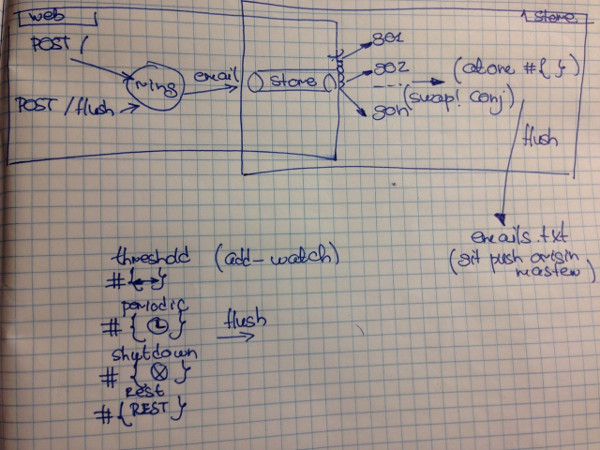 web
store
POST /
POST /flush
ring
email
store
go1
go2
....
gon
(atom #{ })
(swap! conj)
flush
emails.txt
(git push origin
master)
threshold (add-watch)
#{ }
periodic
#{ } flush
shutdown
#{ }
REST
#{REST}